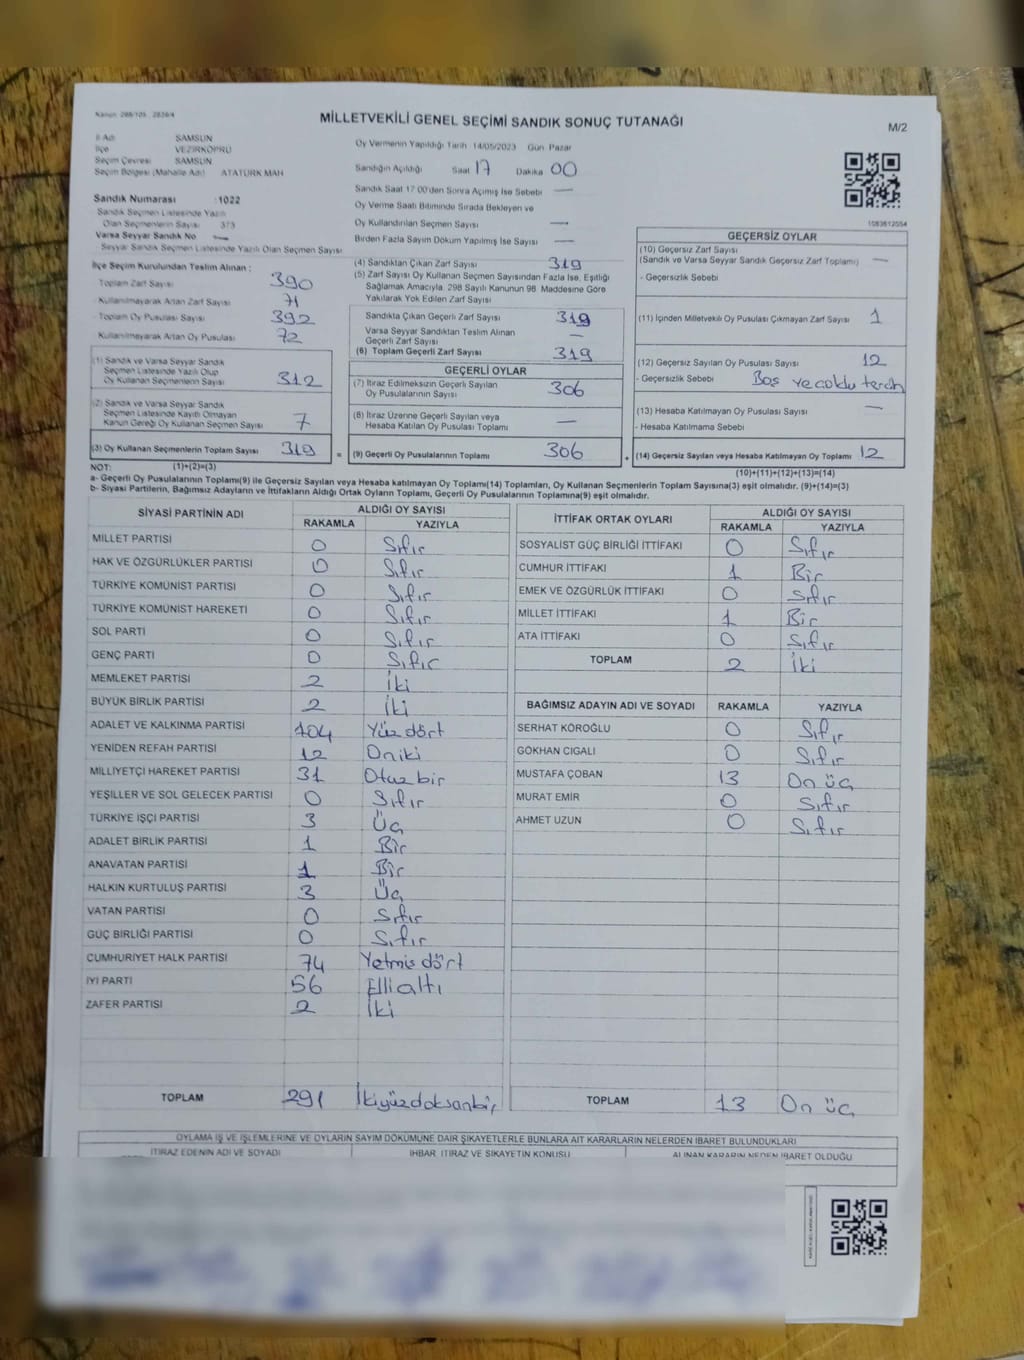 Kanun: 298/105 , 2839/4
MİLLETVEKİLİ GENEL SEÇİMİ SANDIK SONUÇ TUTANAĞI
M/2
İl Adı SAMSUN
İlçe VEZİRKÖPRÜ
Seçim Çevresi SAMSUN
Seçim Bölgesi (Mahalle Adı) ATATÜRK MAH
Oy Vermenin Yapıldığı Tarih 14/05/2023 Gün Pazar
Sandığın Açıldığı Saat 17 Dakika 00
Sandık Saat 17 00'den Sonra Açılmış İse Sebebi —
Oy Verme Saati Bitiminde Sırada Bekleyen ve
Oy Kullandırılan Seçmen Sayısı —
Birden Fazla Sayım Döküm Yapılmış İse Sayısı —
1083612554
Sandık Numarası : 1022
Sandık Seçmen Listesinde Yazılı
Olan Seçmenlerin Sayısı 373
Varsa Seyyar Sandık No —
Seyyar Sandık Seçmen Listesinde Yazılı Olan Seçmen Sayısı
İlçe Seçim Kurulundan Teslim Alınan :
Toplam Zarf Sayısı 390
Kullanılmayarak Artan Zarf Sayısı 71
Toplam Oy Pusulası Sayısı 392
Kullanılmayarak Artan Oy Pusulası 72
(1) Sandık ve Varsa Seyyar Sandık
Seçmen Listesinde Yazılı Olup
Oy Kullanan Seçmenlerin Sayısı 312
(2) Sandık ve Varsa Seyyar Sandık
Seçmen Listesinde Kayıtlı Olmayan
Kanun Gereği Oy Kullanan Seçmen Sayısı 7
(3) Oy Kullanan Seçmenlerin Toplam Sayısı 319
(1)+(2)=(3)
(4) Sandıktan Çıkan Zarf Sayısı 319
(5) Zarf Sayısı Oy Kullanan Seçmen Sayısından Fazla İse, Eşitliği
Sağlamak Amacıyla, 298 Sayılı Kanunun 98. Maddesine Göre
Yakılarak Yok Edilen Zarf Sayısı
Sandıkta Çıkan Geçerli Zarf Sayısı 319
Varsa Seyyar Sandıktan Teslim Alınan
Geçerli Zarf Sayısı —
(6) Toplam Geçerli Zarf Sayısı 319
GEÇERLİ OYLAR
(7) İtiraz Edilmeksizin Geçerli Sayılan
Oy Pusulalarının Sayısı 306
(8) İtiraz Üzerine Geçerli Sayılan veya
Hesaba Katılan Oy Pusulası Toplamı —
= (9) Geçerli Oy Pusulalarının Toplamı 306
GEÇERSİZ OYLAR
(10) Geçersiz Zarf Sayısı
(Sandık ve Varsa Seyyar Sandık Geçersiz Zarf Toplamı) —
- Geçersizlik Sebebi
(11) İçinden Milletvekili Oy Pusulası Çıkmayan Zarf Sayısı 1
(12) Geçersiz Sayılan Oy Pusulası Sayısı 12
- Geçersizlik Sebebi Boş ve çoklu tercih
(13) Hesaba Katılmayan Oy Pusulası Sayısı —
- Hesaba Katılmama Sebebi
+ (14) Geçersiz Sayılan veya Hesaba Katılmayan Oy Toplamı 12
(10)+(11)+(12)+(13)=(14)
NOT:
a- Geçerli Oy Pusulalarının Toplamı(9) ile Geçersiz Sayılan veya Hesaba katılmayan Oy Toplamı(14) Toplamları, Oy Kullanan Seçmenlerin Toplam Sayısına(3) eşit olmalıdır. (9)+(14)=(3)
b- Siyasi Partilerin, Bağımsız Adayların ve İttifakların Aldığı Ortak Oyların Toplamı, Geçerli Oy Pusulalarının Toplamına(9) eşit olmalıdır.
SİYASİ PARTİNİN ADI ALDIĞI OY SAYISI
RAKAMLA YAZIYLA
MİLLET PARTİSİ 0 Sıfır
HAK VE ÖZGÜRLÜKLER PARTİSİ 0 Sıfır
TÜRKİYE KOMÜNİST PARTİSİ 0 Sıfır
TÜRKİYE KOMÜNİST HAREKETİ 0 Sıfır
SOL PARTİ 0 Sıfır
GENÇ PARTİ 0 Sıfır
MEMLEKET PARTİSİ 2 İki
BÜYÜK BİRLİK PARTİSİ 2 İki
ADALET VE KALKINMA PARTİSİ 104 Yüz dört
YENİDEN REFAH PARTİSİ 12 On iki
MİLLİYETÇİ HAREKET PARTİSİ 31 Otuz bir
YEŞİLLER VE SOL GELECEK PARTİSİ 0 Sıfır
TÜRKİYE İŞÇİ PARTİSİ 3 Üç
ADALET BİRLİK PARTİSİ 1 Bir
ANAVATAN PARTİSİ 1 Bir
HALKIN KURTULUŞ PARTİSİ 3 Üç
VATAN PARTİSİ 0 Sıfır
GÜÇ BİRLİĞİ PARTİSİ 0 Sıfır
CUMHURİYET HALK PARTİSİ 74 Yetmiş dört
İYİ PARTİ 56 Elli altı
ZAFER PARTİSİ 2 İki
TOPLAM 291 İkiyüzdoksanbir
İTTİFAK ORTAK OYLARI ALDIĞI OY SAYISI
RAKAMLA YAZIYLA
SOSYALİST GÜÇ BİRLİĞİ İTTİFAKI 0 Sıfır
CUMHUR İTTİFAKI 1 Bir
EMEK VE ÖZGÜRLÜK İTTİFAKI 0 Sıfır
MİLLET İTTİFAKI 1 Bir
ATA İTTİFAKI 0 Sıfır
TOPLAM 2 İki
BAĞIMSIZ ADAYIN ADI VE SOYADI RAKAMLA YAZIYLA
SERHAT KÖROĞLU 0 Sıfır
GÖKHAN CIGALI 0 Sıfır
MUSTAFA ÇOBAN 13 On üç
MURAT EMİR 0 Sıfır
AHMET UZUN 0 Sıfır
TOPLAM 13 On üç
OYLAMA İŞ VE İŞLEMLERİNE VE OYLARIN SAYIM DÖKÜMÜNE DAİR ŞİKAYETLERLE BUNLARA AİT KARARLARIN NELERDEN İBARET BULUNDUKLARI
İTİRAZ EDENİN ADI VE SOYADI İHBAR, İTİRAZ VE ŞİKAYETİN KONUSU ALINAN KARARIN NEDEN İBARET OLDUĞU